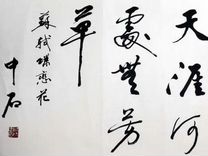 天涯何
處無芳
草
蘇軾蝶戀花
中石